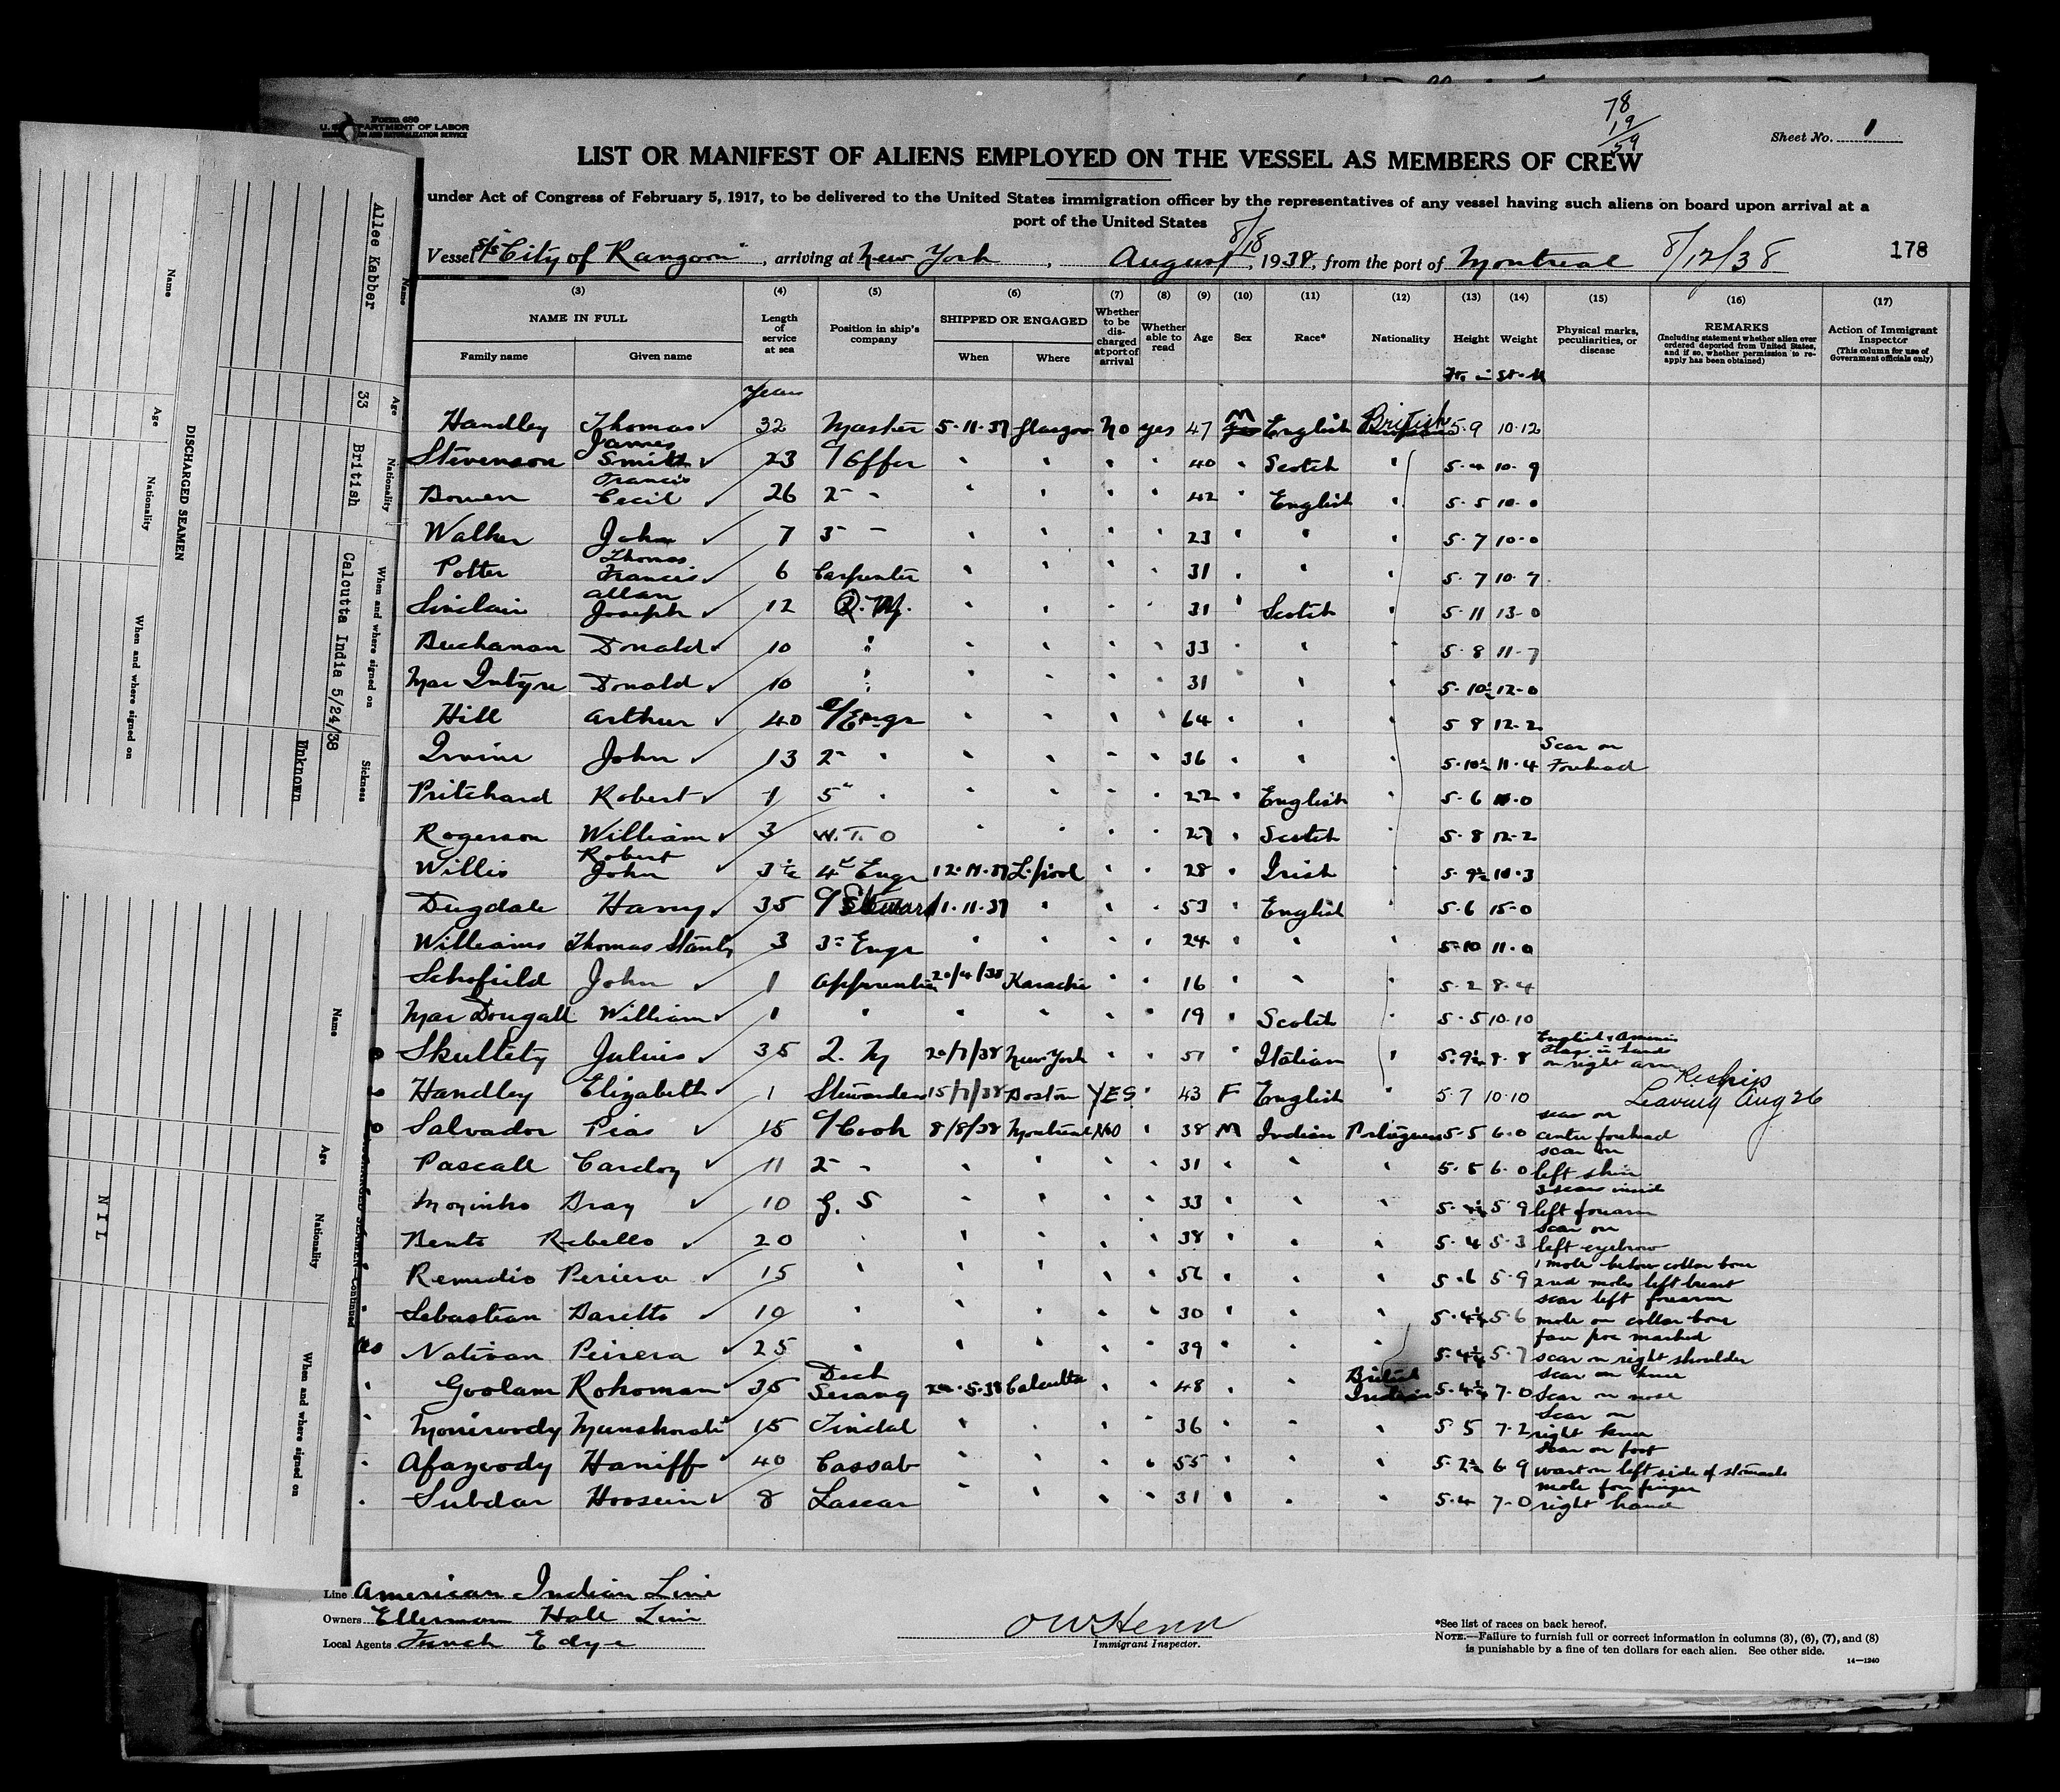 Form 680
U. S. DEPARTMENT OF LABOR
IMMIGRATION AND NATURALIZATION SERVICE
78
19
59
Sheet No. 1
LIST OR MANIFEST OF ALIENS EMPLOYED ON THE VESSEL AS MEMBERS OF CREW
under Act of Congress of February 5, 1917, to be delivered to the United States immigration officer by the representatives of any vessel having such aliens on board upon arrival at a
port of the United States
Vessel S/S "City of Rangoon", arriving at New York, August 8/18, 1938, from the port of Montreal 8/12/38
178
(3) (4) (5) (6) (7) (8) (9) (10) (11) (12) (13) (14) (15) (16) (17)
NAME IN FULL Family name Given name
Length of service at sea
Position in ship's company
SHIPPED OR ENGAGED When Where
Whether to be discharged at port of arrival
Whether able to read
Age Sex Race* Nationality Height Weight
Physical marks, peculiarities, or disease
REMARKS (Including statement whether alien ever ordered deported from United States, and if so, whether permission to reapply has been obtained)
Action of Immigrant Inspector (This column for use of Government officials only)
Years
Handley Thomas 32 Master 5-11-37 Glasgow No yes 47 M English British 5-9 10-12
Stevenson James Smith 23 C/Offer " " " " 40 " Scotch " 5-4 10-9
Bowen Francis Cecil 26 2 " " " " " 42 " English " 5-5 10-0
Walker John 7 3 " " " " " 23 " " " 5-7 10-0
Potter Thomas Francis 6 Carpenter " " " " 31 " " " 5-7 10-7
Sinclair Allan Joseph 12 Q. M. " " " " 31 " Scotch " 5-11 13-0
Buchanan Donald 10 " " " " " 33 " " " 5-8 11-7
MacIntyre Donald 10 " " " " " 31 " " " 5-10½ 12-0
Hill Arthur 40 C/Engr " " " " 64 " " " 5 8 12-2
Irvine John 13 2 " " " " " 36 " " " 5-10½ 11-4 Scar on Forehead
Pritchard Robert 1 5 " " " " " 22 " English " 5-6
Rogerson William 3 W.T.O " " " " 27 " Scotch " 5-8 12-2
Willis Robert John 3½ 4th Engr 12-11-37 L.pool " " 28 " Irish " 5-9½ 10-3
Dugdale Harry 35 C/Steward 1-11-37 " " " 53 " English " 5-6 15-0
Williams Thomas Stanly 3 3 Engr " " " " 24 " " " 5-10 11-0
Schofield John 1 Apprentice 20/4/38 Karachi " " 16 " " " 5-2 8-4
MacDougall William 1 " " " " " 19 " Scotch " 5-5 10-10
Skultety Julius 35 Q. M 20/7/38 New York " " 51 " Italian " 5-9½ 8-8 English & American Flag in hands on right arm
Handley Elizabeth 1 Stewardess 15/7/38 Boston YES " 43 F English " 5 7 10-10 Reship Leaving Aug 26
Salvador Pias 15 C/Cook 8/8/38 Montreal NO " 38 M Indian Portuguese 5-5 6-0 scar on center forehead
Pascall Cardoz 11 2 " " " " " 31 " " " 5-5 6-0 scar on left shin
Moyinho Bray 10 G. S " " " " 33 " " " 5 9 3 scars inside left forearm
Bento Rebello 20 " " " " " 38 " " " 5-4 5-3 scar on left eyebrow
Remedio Periera 15 " " " " " " " " 5-6 5-9 1 mole below collar bone 2nd moles left breast
Sebastian Baretto 10 " " " " " 30 " " " 5-6 scar left forearm mole on collar bone
Nativan Peirera 25 " " " " " 39 " " " 5-7 face poc marked scar on right shoulder
Goolam Rohoman 35 Deck Serang 24-5-38 Calcutta " " 48 " " British Indian 7-0 scar on knee Scar on nose
Moniroody Munshorali 15 Tindal " " " " 36 " " " 5 5 7-2 Scar on right knee
Afazoody Haniff 40 Cassab " " " " 55 " " " 5-2½ 6 9 scar on foot wart on left side of stomach
Subdar Hoosein 8 Lascar " " " " 31 " " " 5-4 7-0 mole fore finger right hand
Line American Indian Line
Owners Ellerman Hall Line
Local Agents Funch Edye
OW Henn
Immigrant Inspector.
*See list of races on back hereof.
NOTE.—Failure to furnish full or correct information in columns (3), (6), (7), and (8)
is punishable by a fine of ten dollars for each alien. See other side.
14—1240
DISCHARGED SEAMEN
Name Age Nationality When and where signed on Sickness
Allee Kabber 33 British Calcutta India 5/24/38 Unknown
Name Age Nationality When and where signed on
DISCHARGED SEAMEN—Continued
Name Age Nationality When and where signed on
NIL